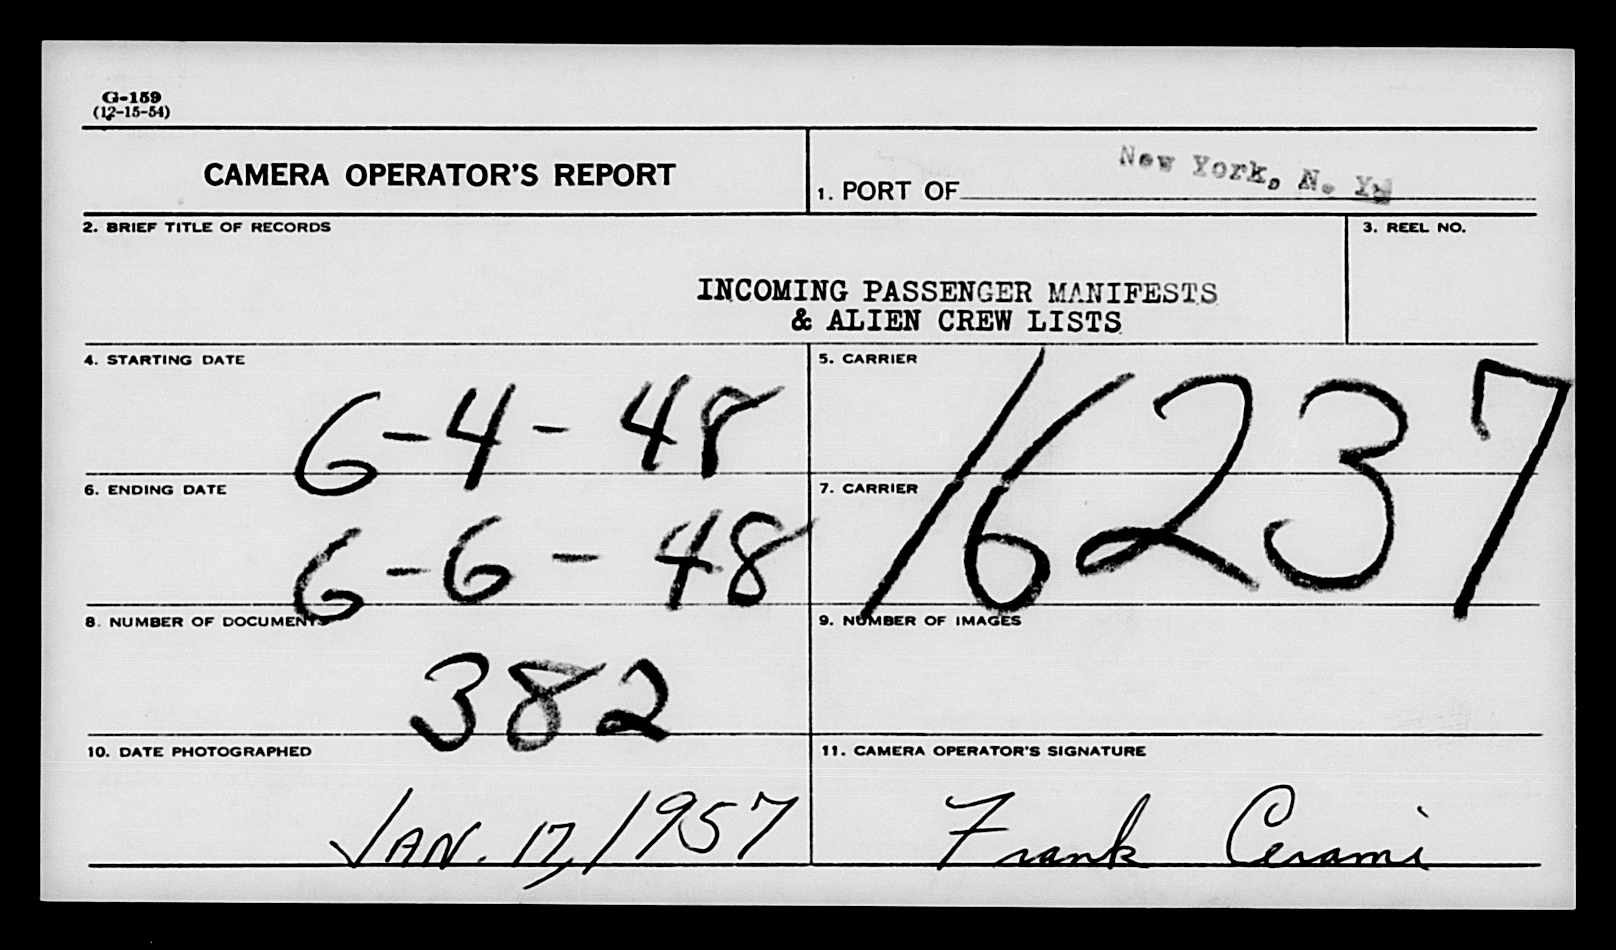 G-159
(12-15-54)
CAMERA OPERATOR'S REPORT
1. PORT OF New York, N. Y.
2. BRIEF TITLE OF RECORDS
3. REEL NO.
INCOMING PASSENGER MANIFESTS
& ALIEN CREW LISTS
4. STARTING DATE
6-4-48
5. CARRIER
16237
6. ENDING DATE
6-6-48
7. CARRIER
8. NUMBER OF DOCUMENTS
382
9. NUMBER OF IMAGES
10. DATE PHOTOGRAPHED
JAN. 17, 1957
11. CAMERA OPERATOR'S SIGNATURE
Frank Cerami